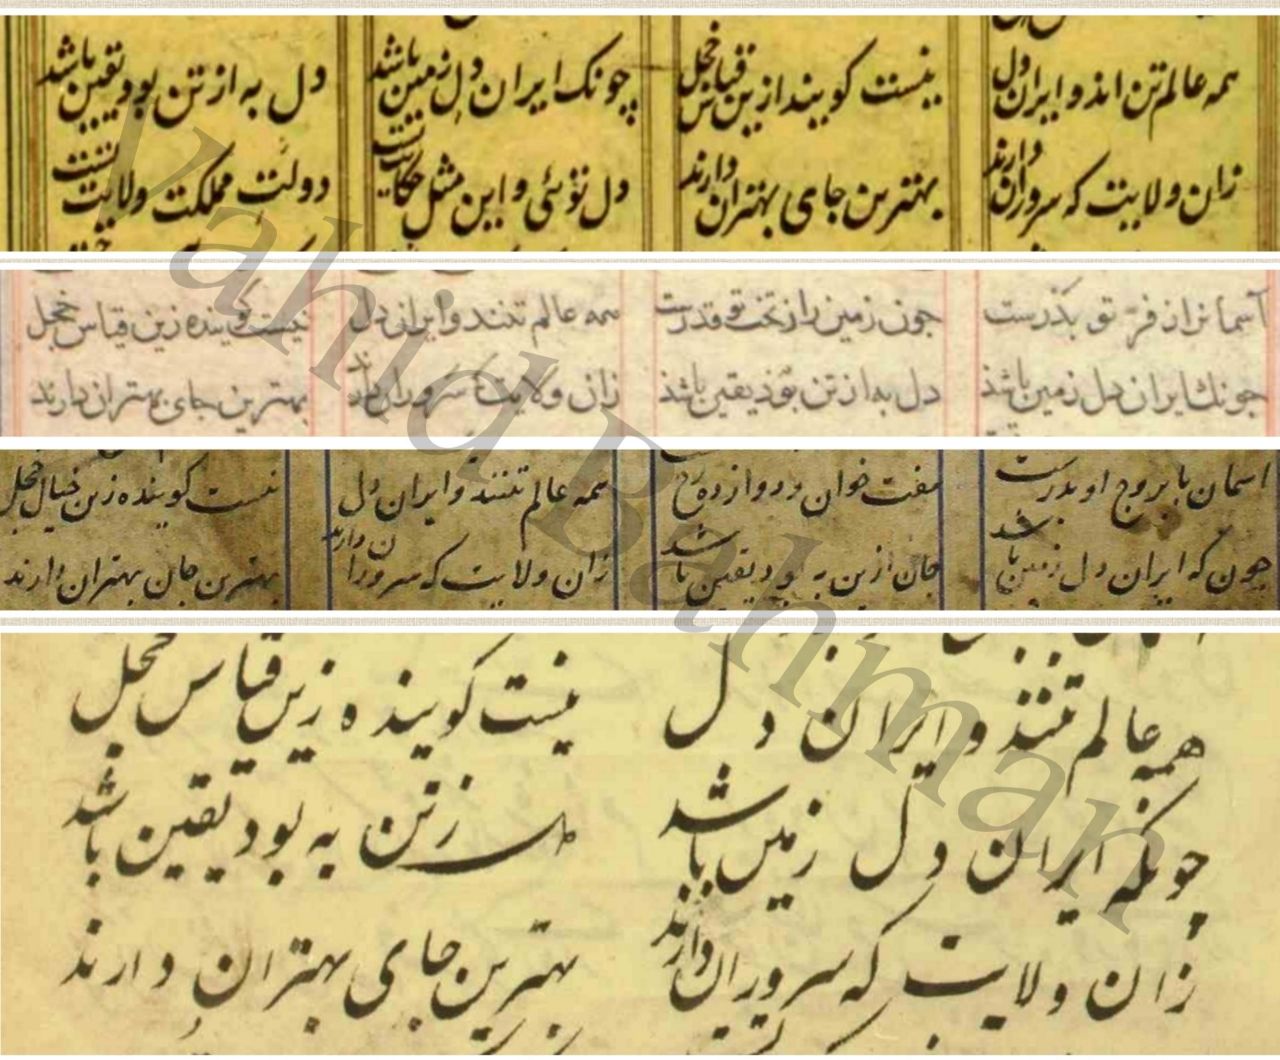 همه عالم تن اند و ایران دل نیست کوینداز ین قیاس خجل چونک ایران دل زمین باشد دل به از تن بود یقین باشد
زان ولایت که سروران دارند بهترین جای بهتران دارند دل توئی و این مثل حکایت دولت مملکت ولایت
آسمانراز فر تو بدرست جون زمین را زتخت تو قدرست همه عالم تنند و ایران دل نیست کوینده زین قیاس خجل
جونک ایران دل زمین باشذ دل به از تن بوذ یقین باشذ زان ولایت که سروران دارند بهترین جای بهتران دارند
اسمان با بروج او بدرست هفت خوان و دوازده رخ همه عالم تنند و ایران دل نیست کوینده زین خیال خجل
چون که ایران دل زمین باشد جان ازین به بود یقین باشد زان ولایت که سروران دارند بهترین جان بهتران دارند
همه عالم تنند و ایران دل نیست کوینده زین قیاس خجل
چونکه ایران دل زمین باشد دل زتن به بود یقین باشد
زان ولایت که سروران دارند بهترین جای بهتران دارند
Vahid Bahman